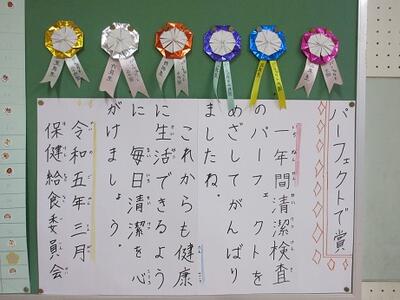 パーフェクトで賞
一年間清潔検査
のパーフェクトを
めざしてがんばり
ましたね。
これからも健康
に生活できるよう
に毎日清潔を心
がけましょう。
令和五年三月
保健給食委員会